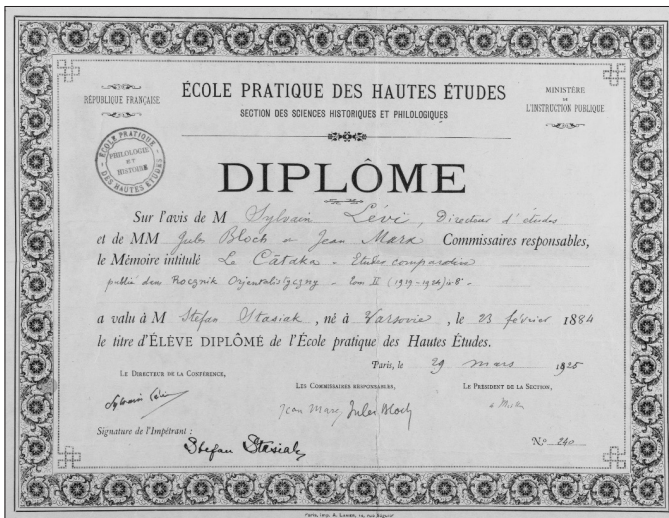 RÉPUBLIQUE FRANÇAISE
ÉCOLE PRATIQUE DES HAUTES ÉTUDES
SECTION DES SCIENCES HISTORIQUES ET PHILOLOGIQUES
MINISTÈRE
DE
L'INSTRUCTION PUBLIQUE
ÉCOLE PRATIQUE
PHILOLOGIE
ET
HISTOIRE
DES HAUTES ÉTUDES
DIPLÔME
Sur l'avis de M Sylvain Lévi, Directeur d'études
et de MM Jules Bloch et Jean Marx Commissaires responsables,
le Mémoire intitulé Le Cātaka - Etudes comparatives
publié dans Rocznik Orjentalistyczny - tom II (1919-1924) in 8° -
a valu à M Stefan Stasiak, né à Varsovie, le 23 février 1884
le titre d'ÉLÈVE DIPLÔMÉ de l'École pratique des Hautes Études.
Paris, le 29 mars 1925
LE DIRECTEUR DE LA CONFÉRENCE,
LES COMMISSAIRES RESPONSABLES,
LE PRÉSIDENT DE LA SECTION,
Sylvain Lévi
Jean Marx Jules Bloch
Signature de l'Impétrant :
Stefan Stasiak
N° 240
Paris, Imp. A. LANIER, 14, rue Séguier